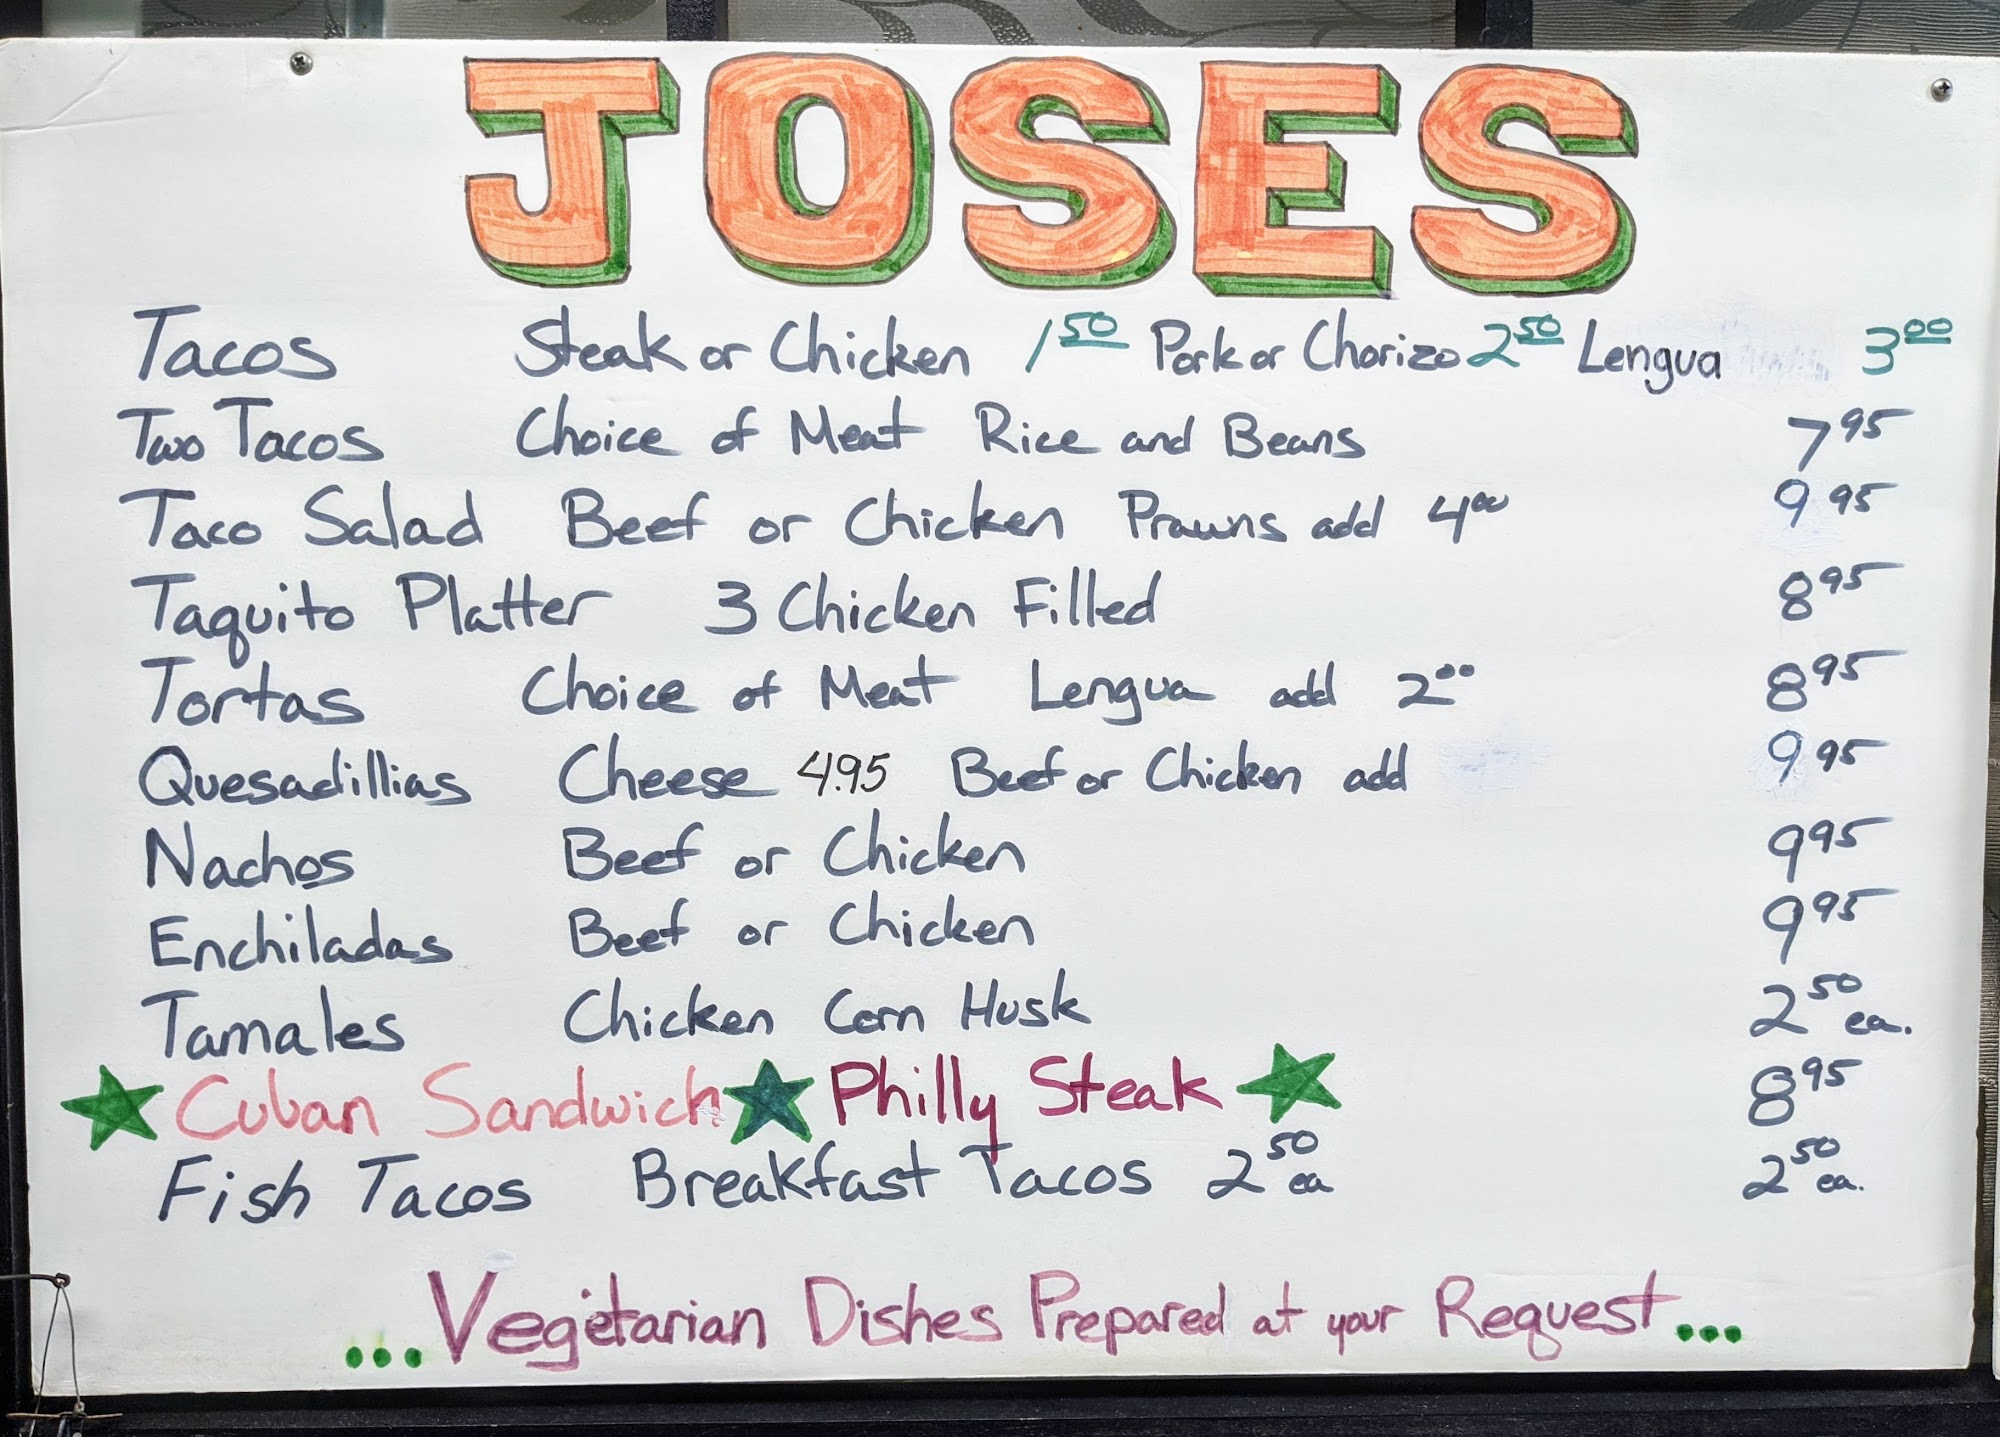 JOSES
Tacos Steak or Chicken 1 50 Pork or Chorizo 2 50 Lengua 3 00
Two Tacos Choice of Meat Rice and Beans 7 95
Taco Salad Beef or Chicken Prawns add 4 00 9 95
Taquito Platter 3 Chicken Filled 8 95
Tortas Choice of Meat Lengua add 2 00 8 95
Quesadillias Cheese 4.95 Beef or Chicken add 9 95
Nachos Beef or Chicken 9 95
Enchiladas Beef or Chicken 9 95
Tamales Chicken Corn Husk 2 50 ea.
Cuban Sandwich Philly Steak 8 95
Fish Tacos Breakfast Tacos 2 50 ea 2 50 ea.
...Vegetarian Dishes Prepared at your Request...